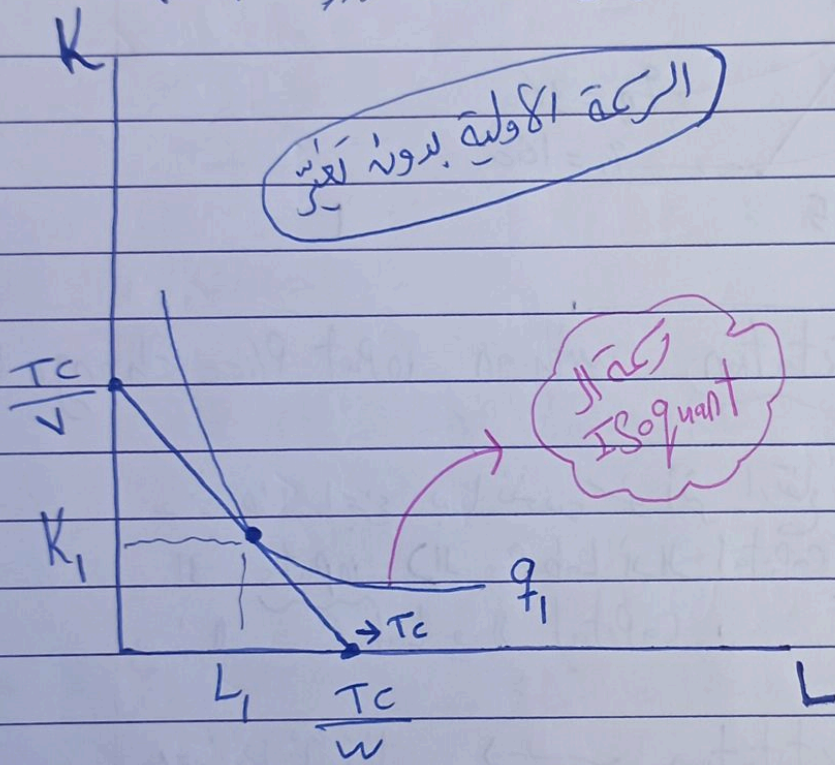 K
الرسمة الأولية بدون تغيّر
TC
V
رسمة ال
ISoquant
K1
q1
→ TC
L1
TC
w
L